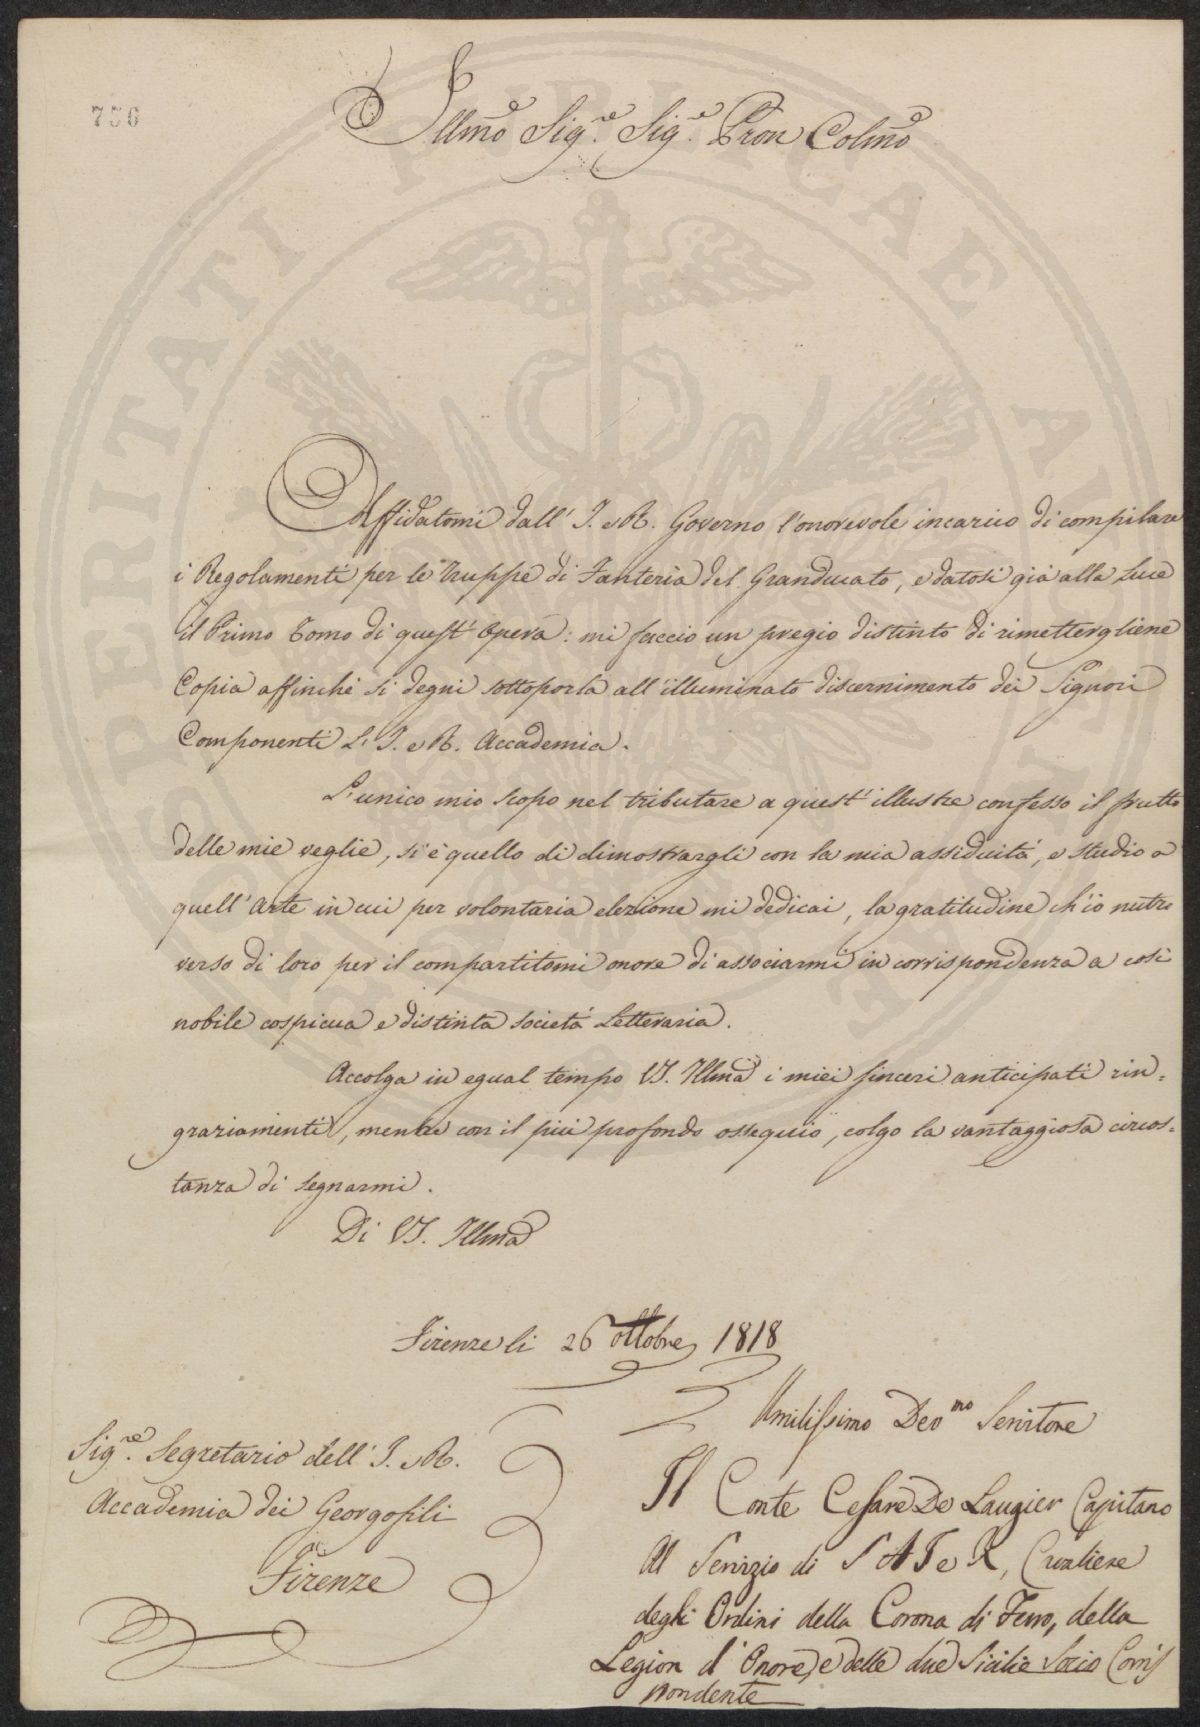 756
Illmo Sigre. Sigre. Pron Colmo
Affidatomi dall' I. e R. Governo l'onorevole incarico di compilare
i Regolamenti per le Truppe di Fanteria del Granducato, e datosi già alla Luce
il Primo Tomo di quest' Opera: mi faccio un pregio distinto di rimettergliene
Copia affinchè si degni sottoporla all' illuminato discernimento dei Signori
Componenti L' I. e R. Accademia.
L'unico mio scopo nel tributare a quest' illustre confesso il frutto
delle mie veglie, si è quello di dimostrargli con la mia assiduità, e studio a
quell' Arte in cui per volontaria elezione mi dedicai, la gratitudine ch'io nutro
verso di loro per il compartitomi onore di associarmi in corrispondenza a così
nobile cospicua e distinta società Letteraria.
Accolga in egual tempo VS. Illma i miei sinceri anticipati rin=
graziamenti, mentre con il più profondo ossequio, colgo la vantaggiosa circos=
tanza di segnarmi.
Di VS. Illma
Firenze li 26 Ottobre 1818
Umilissimo Devmo Servitore
Il Conte Cesare De Laugier Capitano
Al Servizio di S A I e R, Cavaliere
degli Ordini della Corona di Ferro, della
Legion d' Onore, e delle due Sicilie Socio Corris
pondente
Sigre. Segretario dell' I. e R.
Accademia dei Georgofili
Firenze
PROSPERITATI PUBLICAE AUGENDAE